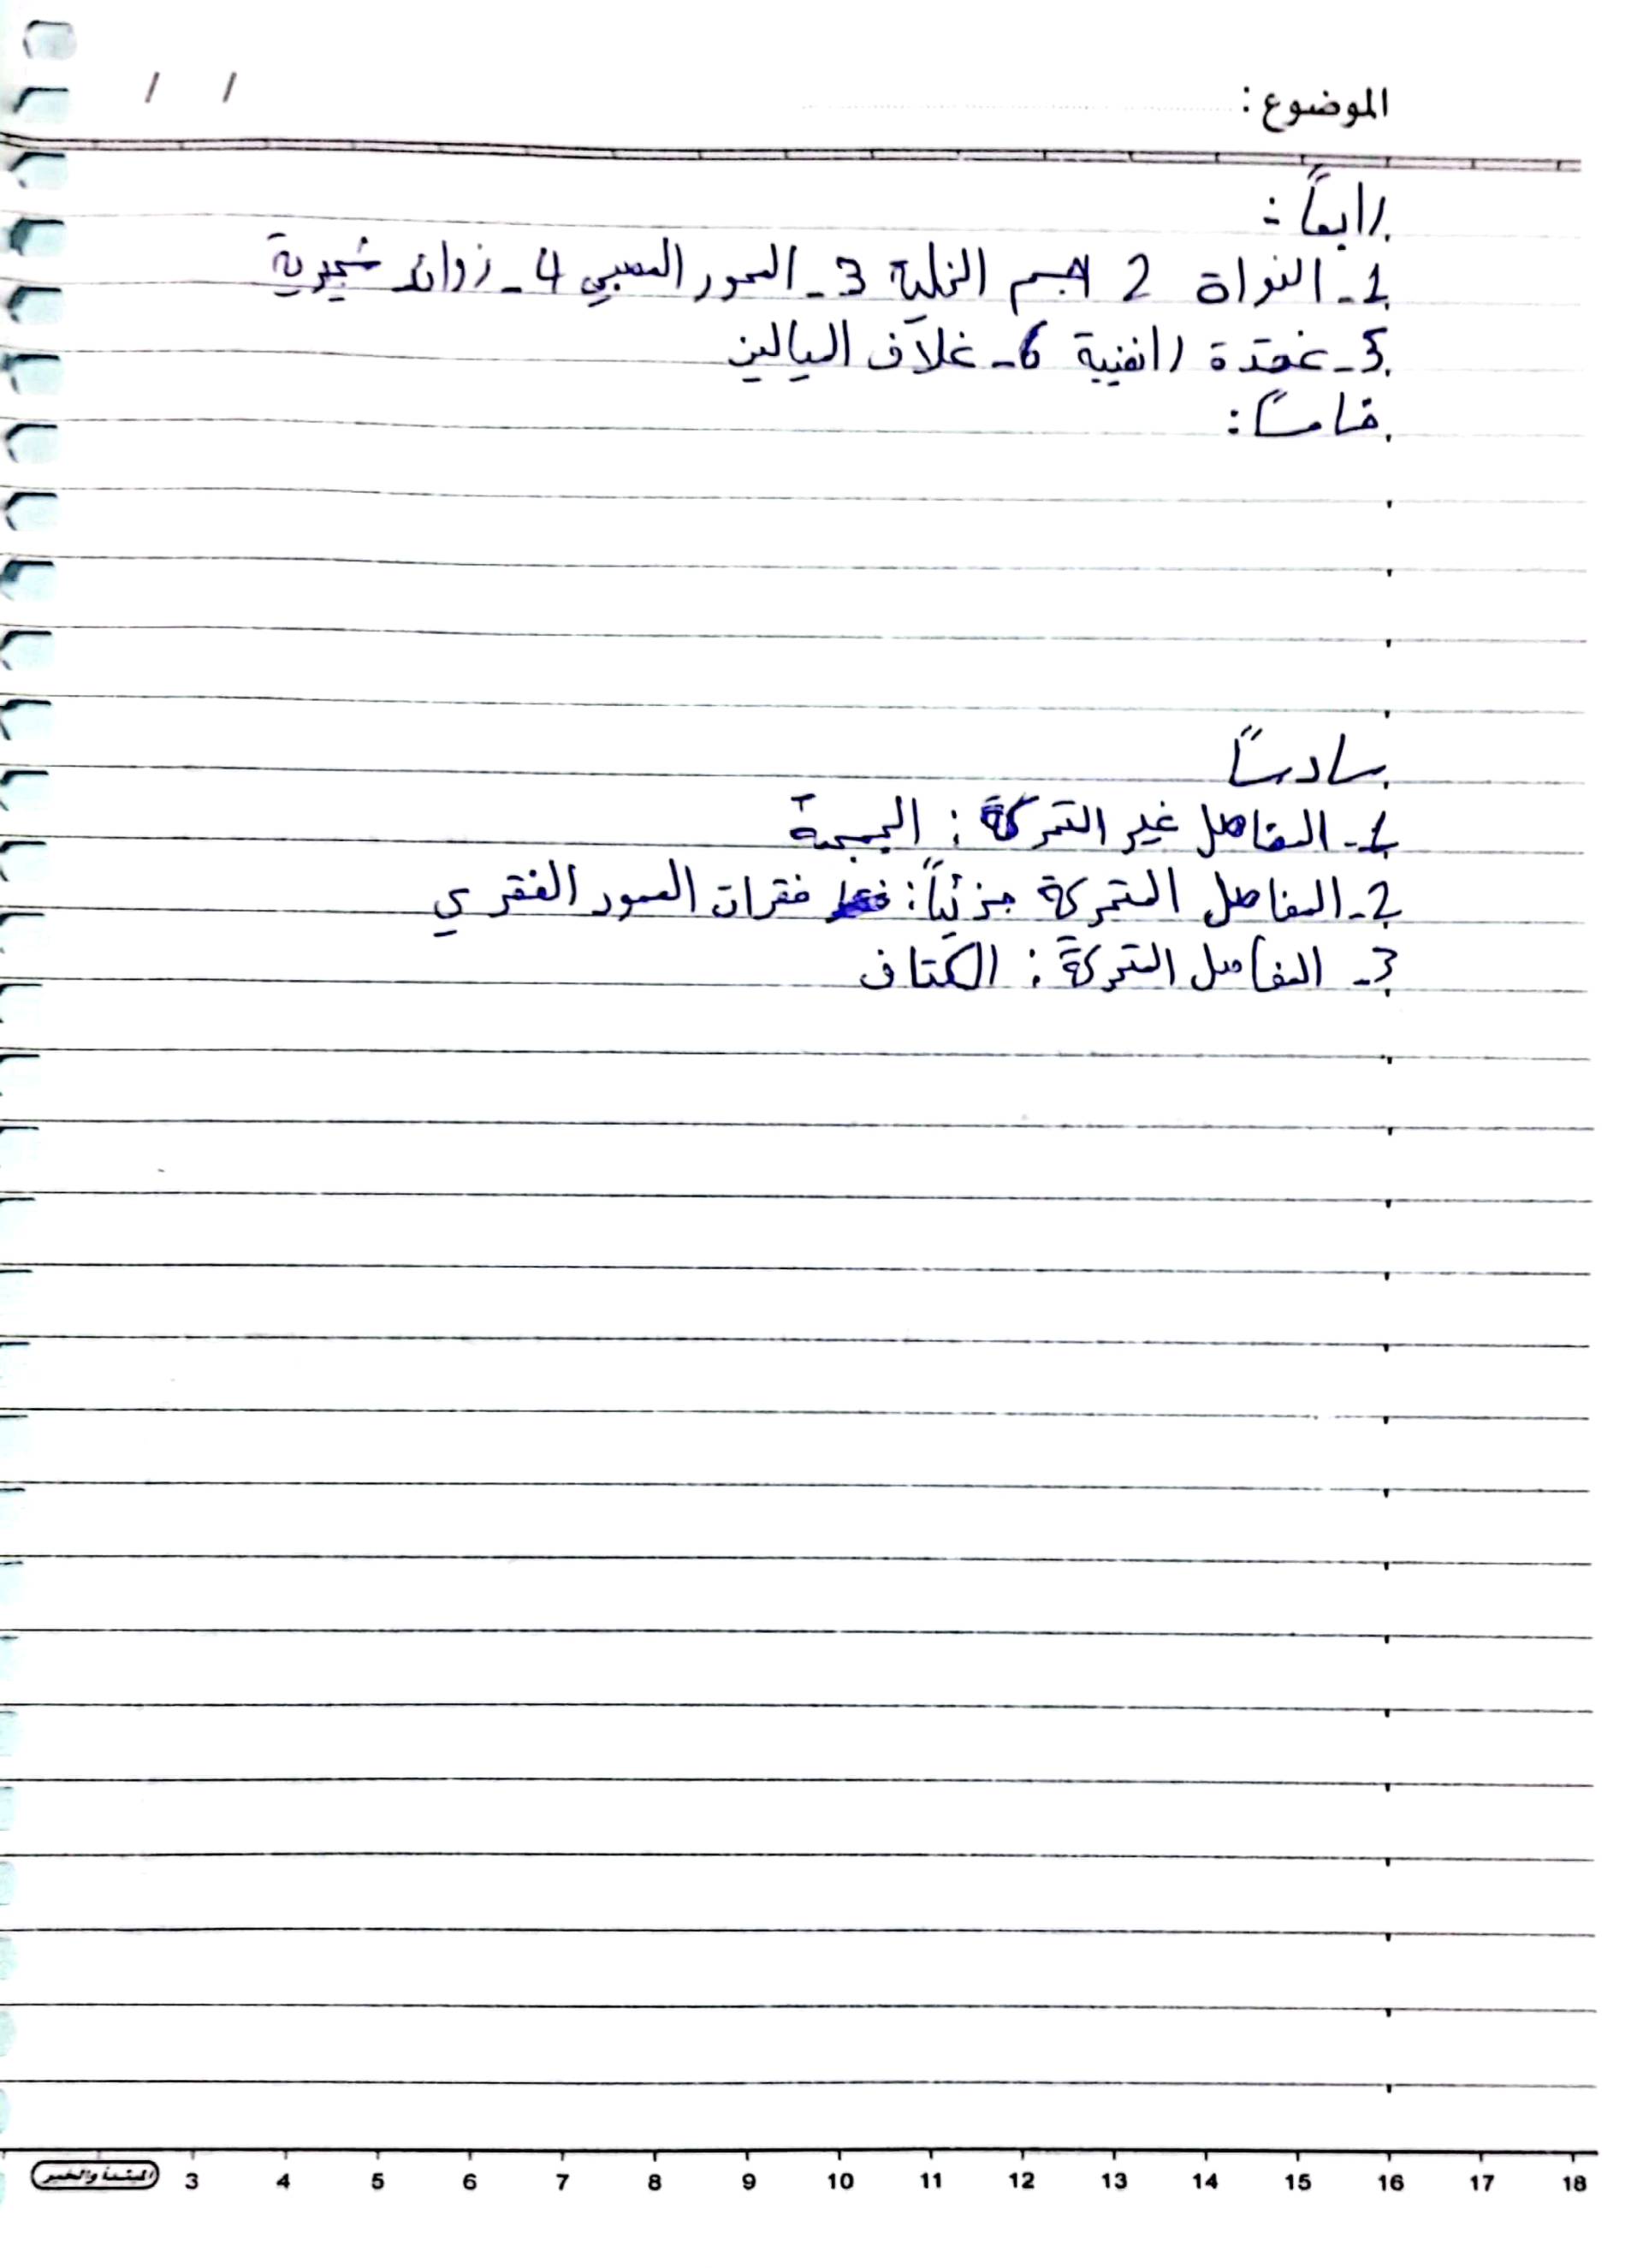 الموضوع: / /
رابعاً:
1- النواة 2 جسم الخلية 3- المحور العصبي 4- زوائد شجيرية
5- عقدة رانفنيية 6- غلاف الميالين
خامساً:
سادساً
1- المفاصل غير المتحركة: الجمجمة
2- المفاصل المتحركة جزئياً: فقرات العمود الفقري
3- المفاصل المتحركة: الكتاف
المبتدأ والخبر 3 4 5 6 7 8 9 10 11 12 13 14 15 16 17 18